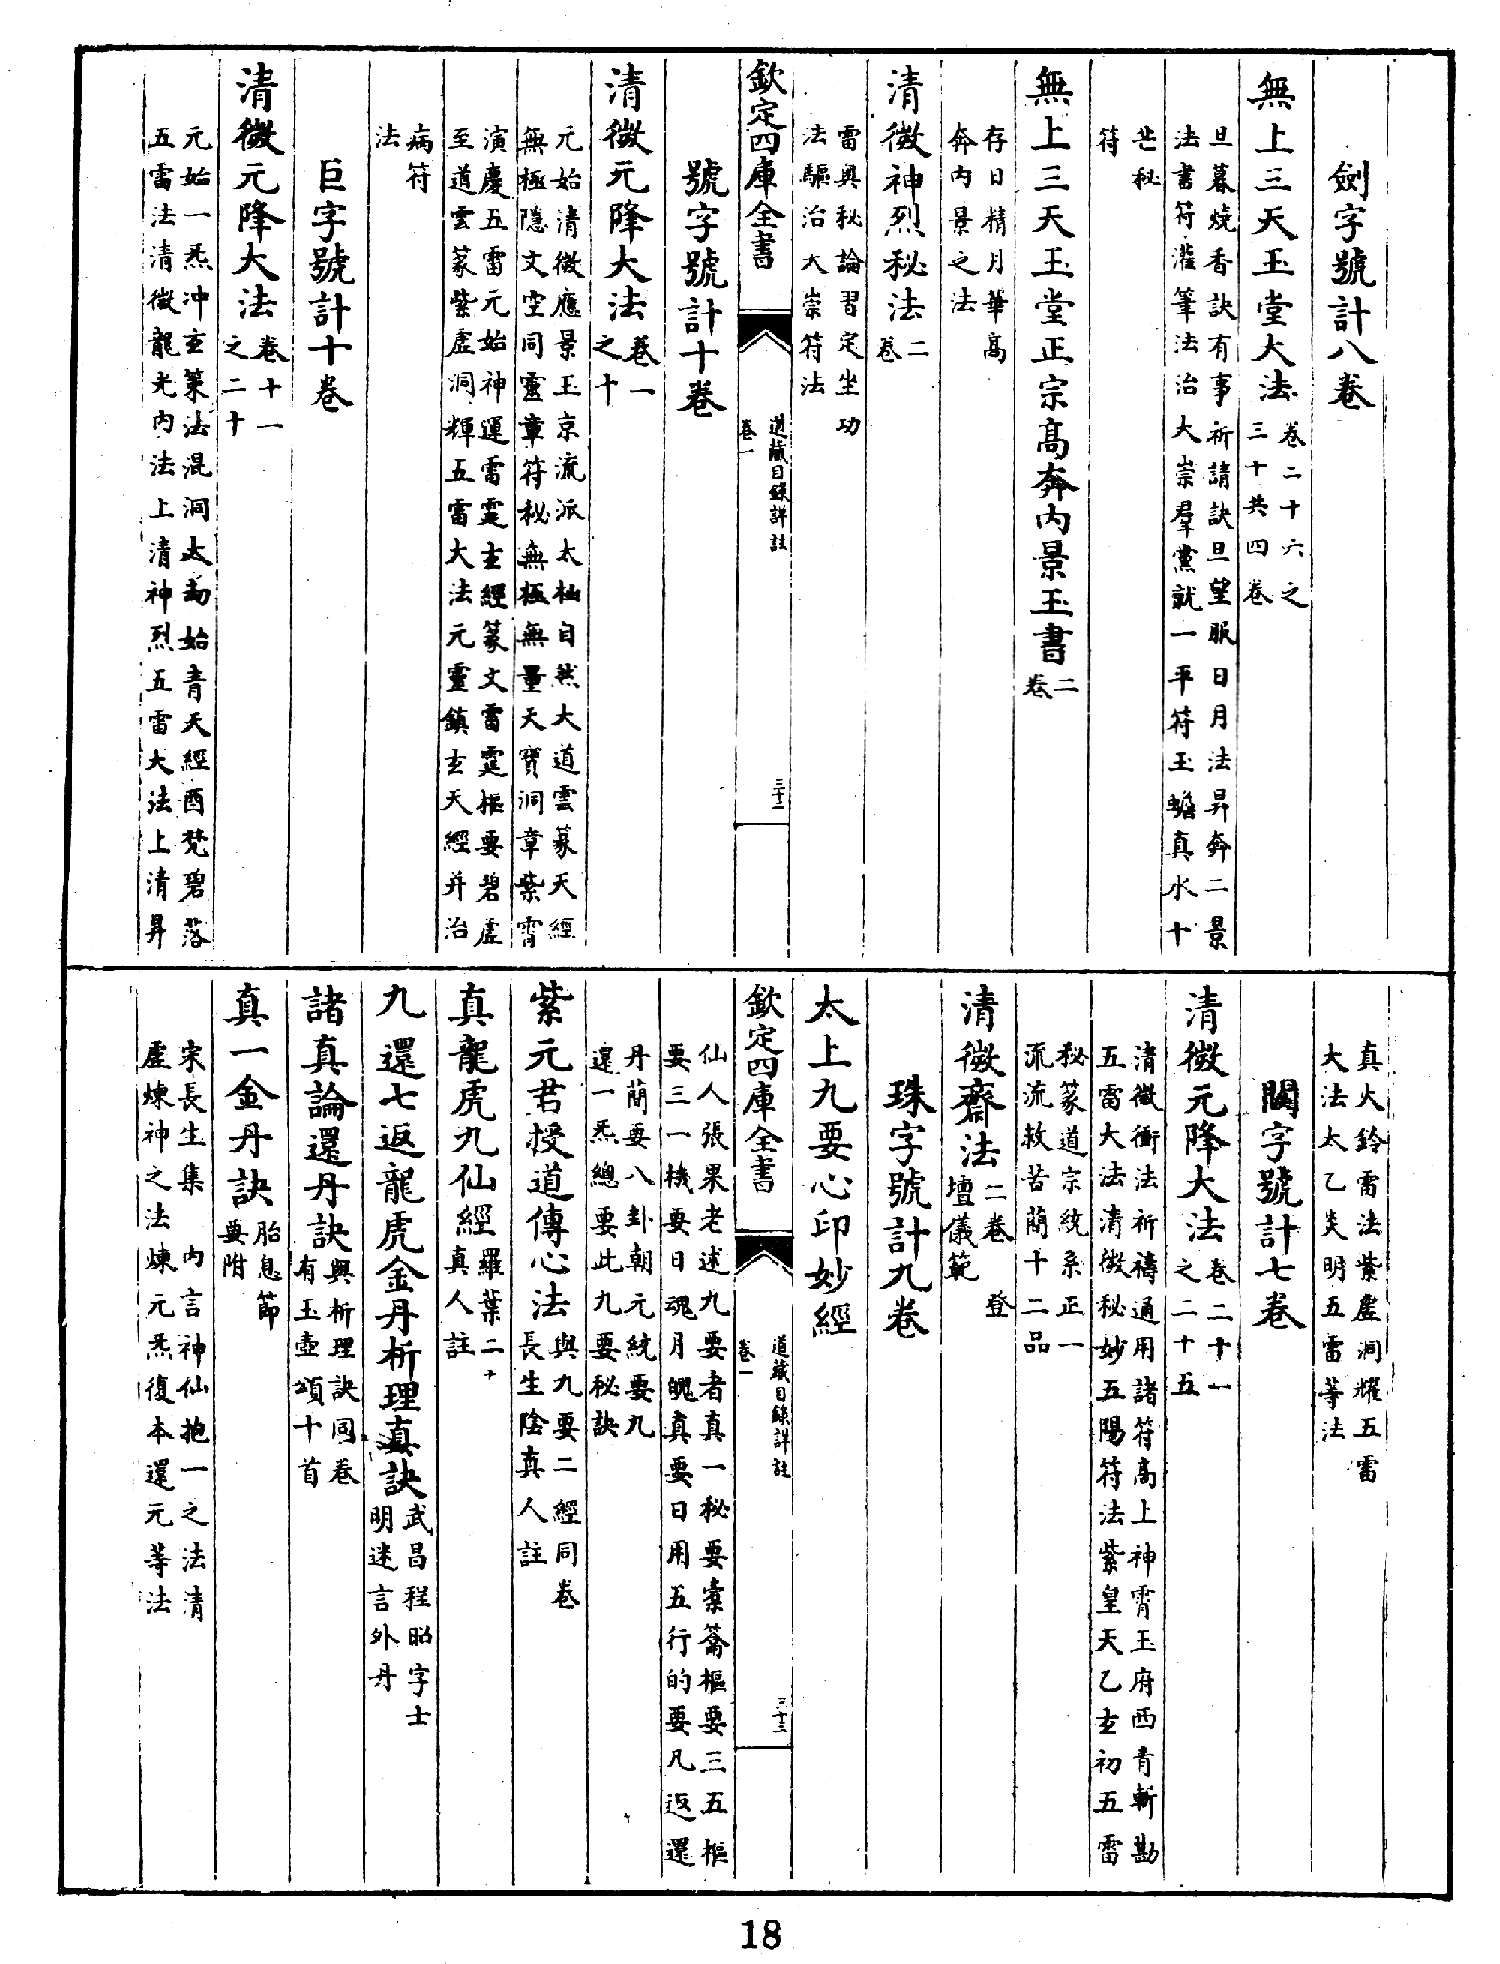 劍字號計八卷
無上三天玉堂大法卷二十六之
三十共四卷
旦暮燒香訣有事祈請訣旦望服日月法昇奔二景
法書符灌筆法治大崇羣黨就一平符玉蟾真水十
芒秘
符
無上三天玉堂正宗高奔內景玉書二
卷
存日精月華高
奔內景之法
清微神烈秘法二
卷
雷奧秘論習定坐功
法驅治大崇符法
欽定四庫全書
道藏目錄詳註
卷一
三十二
號字號計十卷
清微元降大法卷一
之十
元始清微應景玉京流派太極自然大道雲篆天經
無極隱文空同靈章符秘無極無量天寶洞章紫霄
演慶五雷元始神運雷霆玄經篆文雷霆樞要碧虛
至道雲篆紫虛洞輝五雷大法元靈鎮玄天經并治
病符
法
巨字號計十卷
清微元降大法卷十一
之二十
元始一炁冲玄籙法混洞太劫始青天經酉梵碧落
五雷法清微龍光內法上清神烈五雷大法上清昇
真火鈴雷法紫虛洞耀五雷
大法太乙炎明五雷等法
闕字號計七卷
清微元降大法卷二十一
之二十五
清微衝法祈禱通用諸符高上神霄玉府西青斬勘
五雷大法清微秘妙五陽符法紫皇天乙玄初五雷
秘篆道宗統系正一
流流救苦蕳十二品
清微齋法二卷 登
壇儀範
珠字號計九卷
太上九要心印妙經
欽定四庫全書
道藏目錄詳註
卷一
三十三
仙人張果老述九要者真一秘要橐籥樞要三五樞
要三一機要日魂月魄真要日用五行的要凡返還
丹蕳要八卦朝元統要九
還一炁總要此九要秘訣
紫元君授道傳心法與九要二經同卷
長生陰真人註
真龍虎九仙經羅葉二
真人註
九還七返龍虎金丹析理真訣武昌程昭字士
明述言外丹
諸真論還丹訣與析理訣同卷
有玉壺頌十首
真一金丹訣胎息節
要附
宋長生集 內言神仙抱一之法清
虛煉神之法煉元炁復本還元等法
18